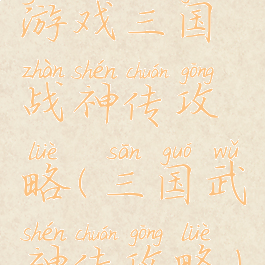 游戏三国
zhàn shén chuán gōng
战神传攻
lüè sān guó wǔ
略(三国武
shén chuán gōng lüè
神传攻略)